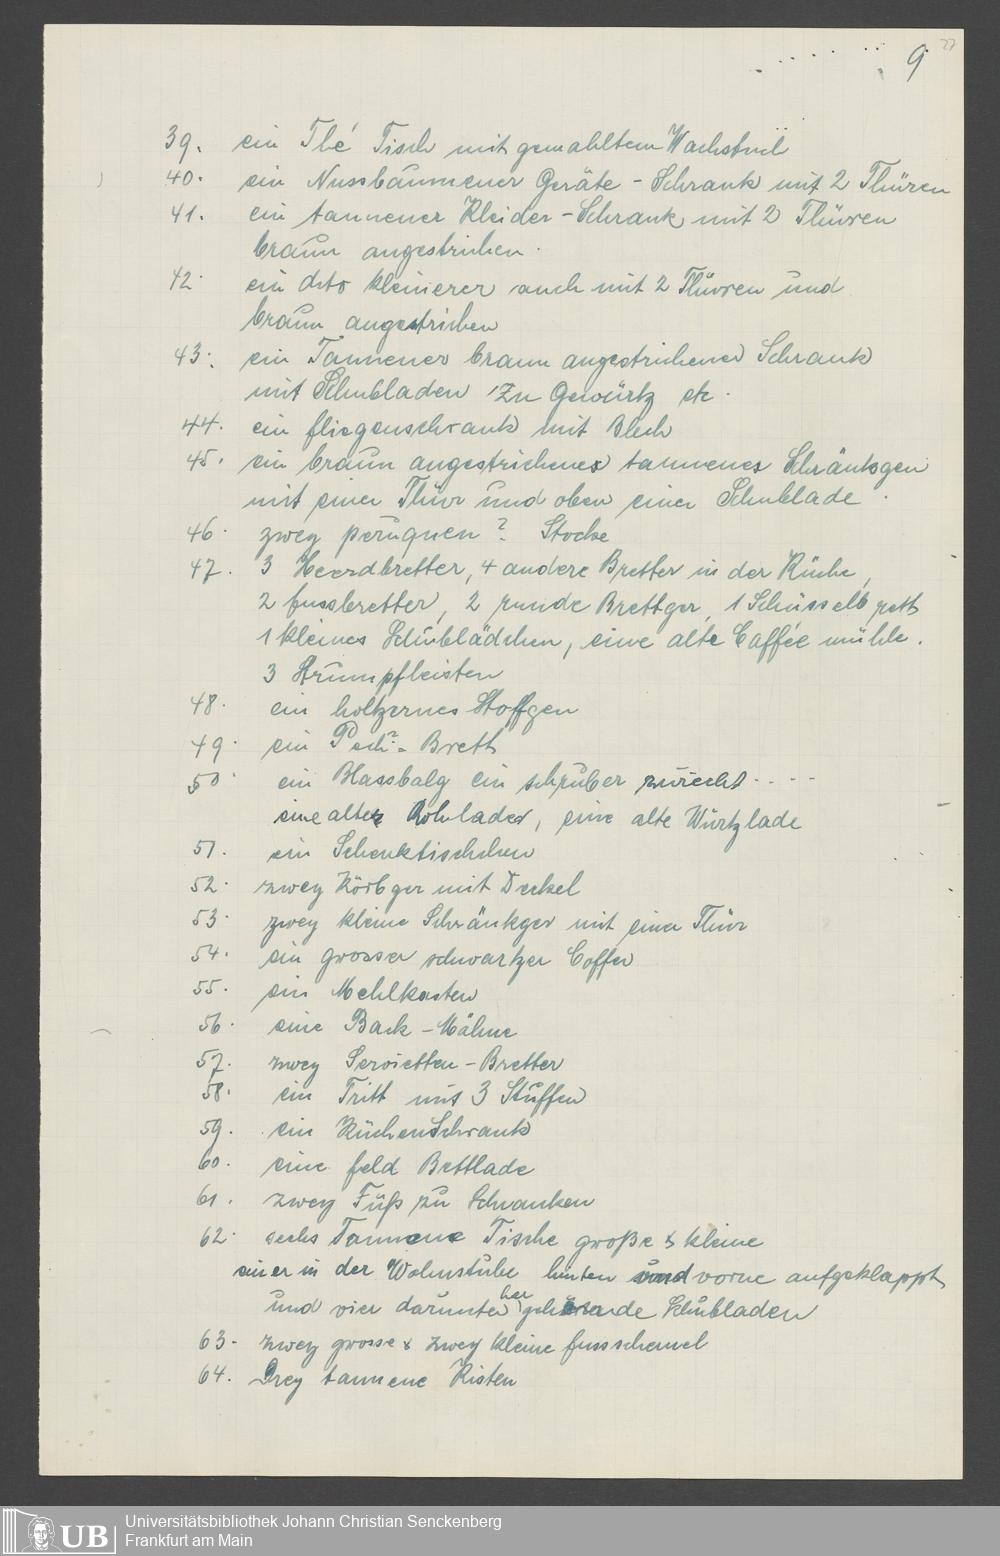 27
9
39. ein Thé Tisch mit gemahltem Wachstuch
40. ein Nussbäumener Geräte-Schrank mit 2 Thüren
41. ein tannener Kleider-Schrank mit 2 Thüren
braun angestrichen.
42. ein dito kleinerer auch mit 2 Thüren und
braun angestrichen
43. ein Tannener braun angestrichener Schrank
mit Schubladen zu Gewürtz etc.
44. ein fliegenschrank mit Blech
45. ein braun angestrichenes tannenes Schränkgen
mit einer Thür und oben einer Schublade.
46. zwey peruquen? Stocke
47. 3 Heerdbretter, 4 andere Bretter in der Küche,
2 fussbretter, 2 runde Brettger, 1 Schüsselbrett
1 kleines Schublädchen, eine alte Cafféé mühle.
3 Strumpfleisten
48. ein holtzernes Stoffgen
49. ein Pech?- Brett
50. ein Blassbalg ein schruber zurecht ....
eine alte Rohrlader, eine alte Würtzlade
51. ein Schenktischchen
52. zwey Körbger mit Deckel
53. zwey kleine Schränkger mit einer Thür
54. ein grosser schwartzer Coffer
55. ein Mehlkasten
56. eine Back-Mähne
57. zwey Servietten-Bretter
58. ein Tritt mit 3 Stuffen
59. ein KüchenSchrank
60. eine feld Bettlade
61. zwey Füß zu Schranken
62. sechs Tannene Tische große & kleine
einer in der Wohnstube hinten und vorne aufgeklappt
und vier darunter her gehende Schubladen
63. zwey grosse & zwey kleine fussschemel
64. Drey tannene Kisten
UB Universitätsbibliothek Johann Christian Senckenberg
Frankfurt am Main